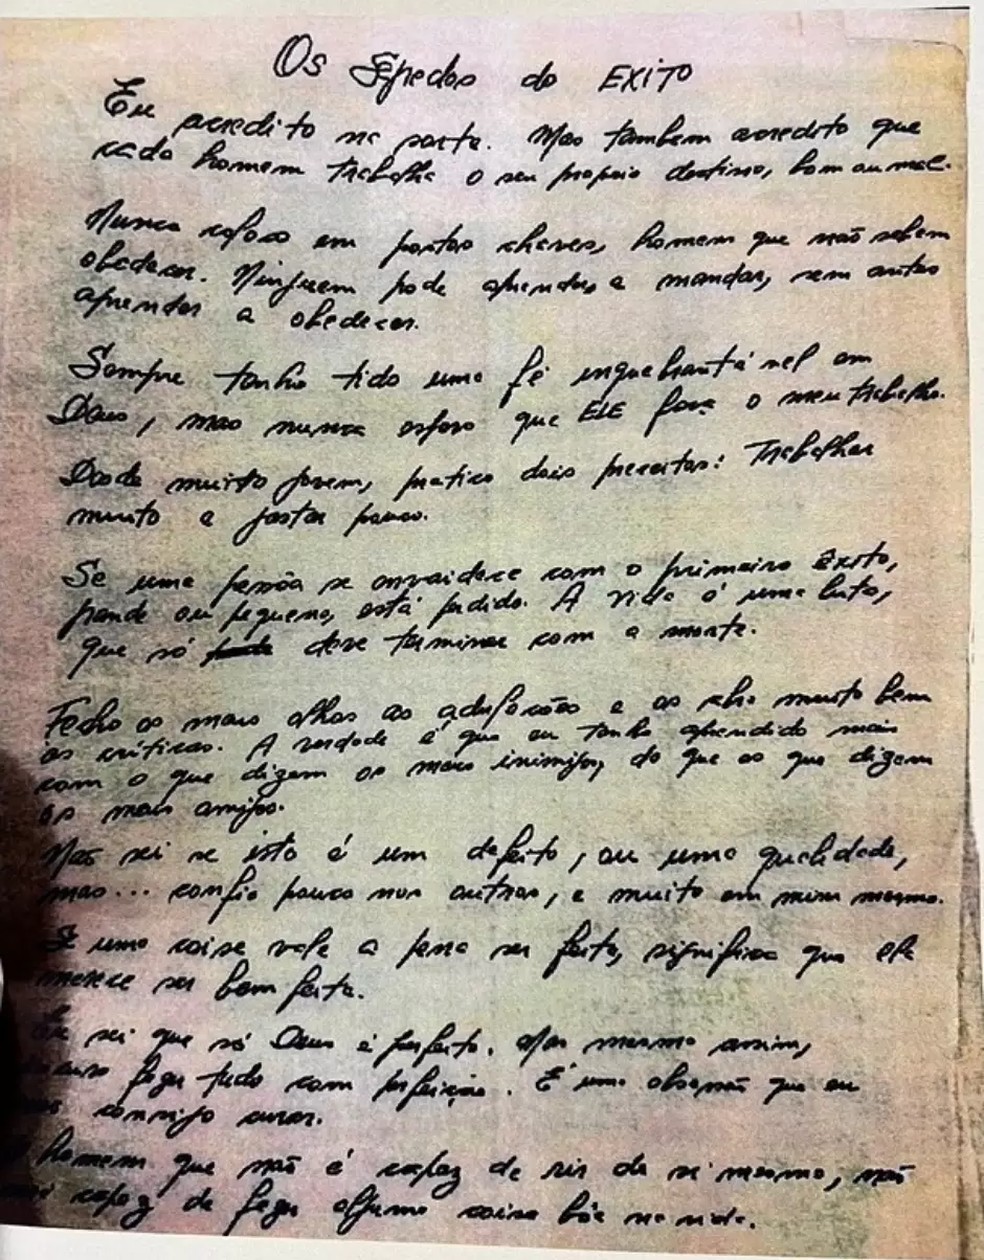 Os Segredos do EXITO
Eu acredito na sorte. Mas tambem acredito que
cada homem trabalha o seu proprio destino, bom ou mal.
Nunca coloco em postos chaves, homem que não sabem
obedecer. Ninguem pode aprender a mandar, sem antes
aprender a obedecer.
Sempre tenho tido uma fé inquebrantável em
Deus, mas nunca espero que ELE faça o meu trabalho.
Desde muito jovem, pratico dois preceitos: Trabalhar
muito e gastar pouco.
Se uma pessôa se envaidece com o primeiro êxito,
grande ou pequeno, está perdido. A vida é uma luta,
que só deve terminar com a morte.
Fecho os meus olhos as adulações e os abro muito bem
as criticas. A verdade é que eu tenho aprendido mais
com o que dizem os meus inimigos, do que ao que dizem
os meus amigos.
Não sei se isto é um defeito, ou uma qualidade,
mas... confio pouco nos outros, e muito em mim mesmo.
Se uma coisa vale a pena ser feita, significa que ela
merece ser bem feita.
Eu sei que só Deus é perfeito. Mas mesmo assim,
fazer tudo com perfeição. É uma obsessão que eu
consigo curar.
homem que não é capaz de rir de si mesmo, não
capaz de fazer alguma coisa bôa na vida.